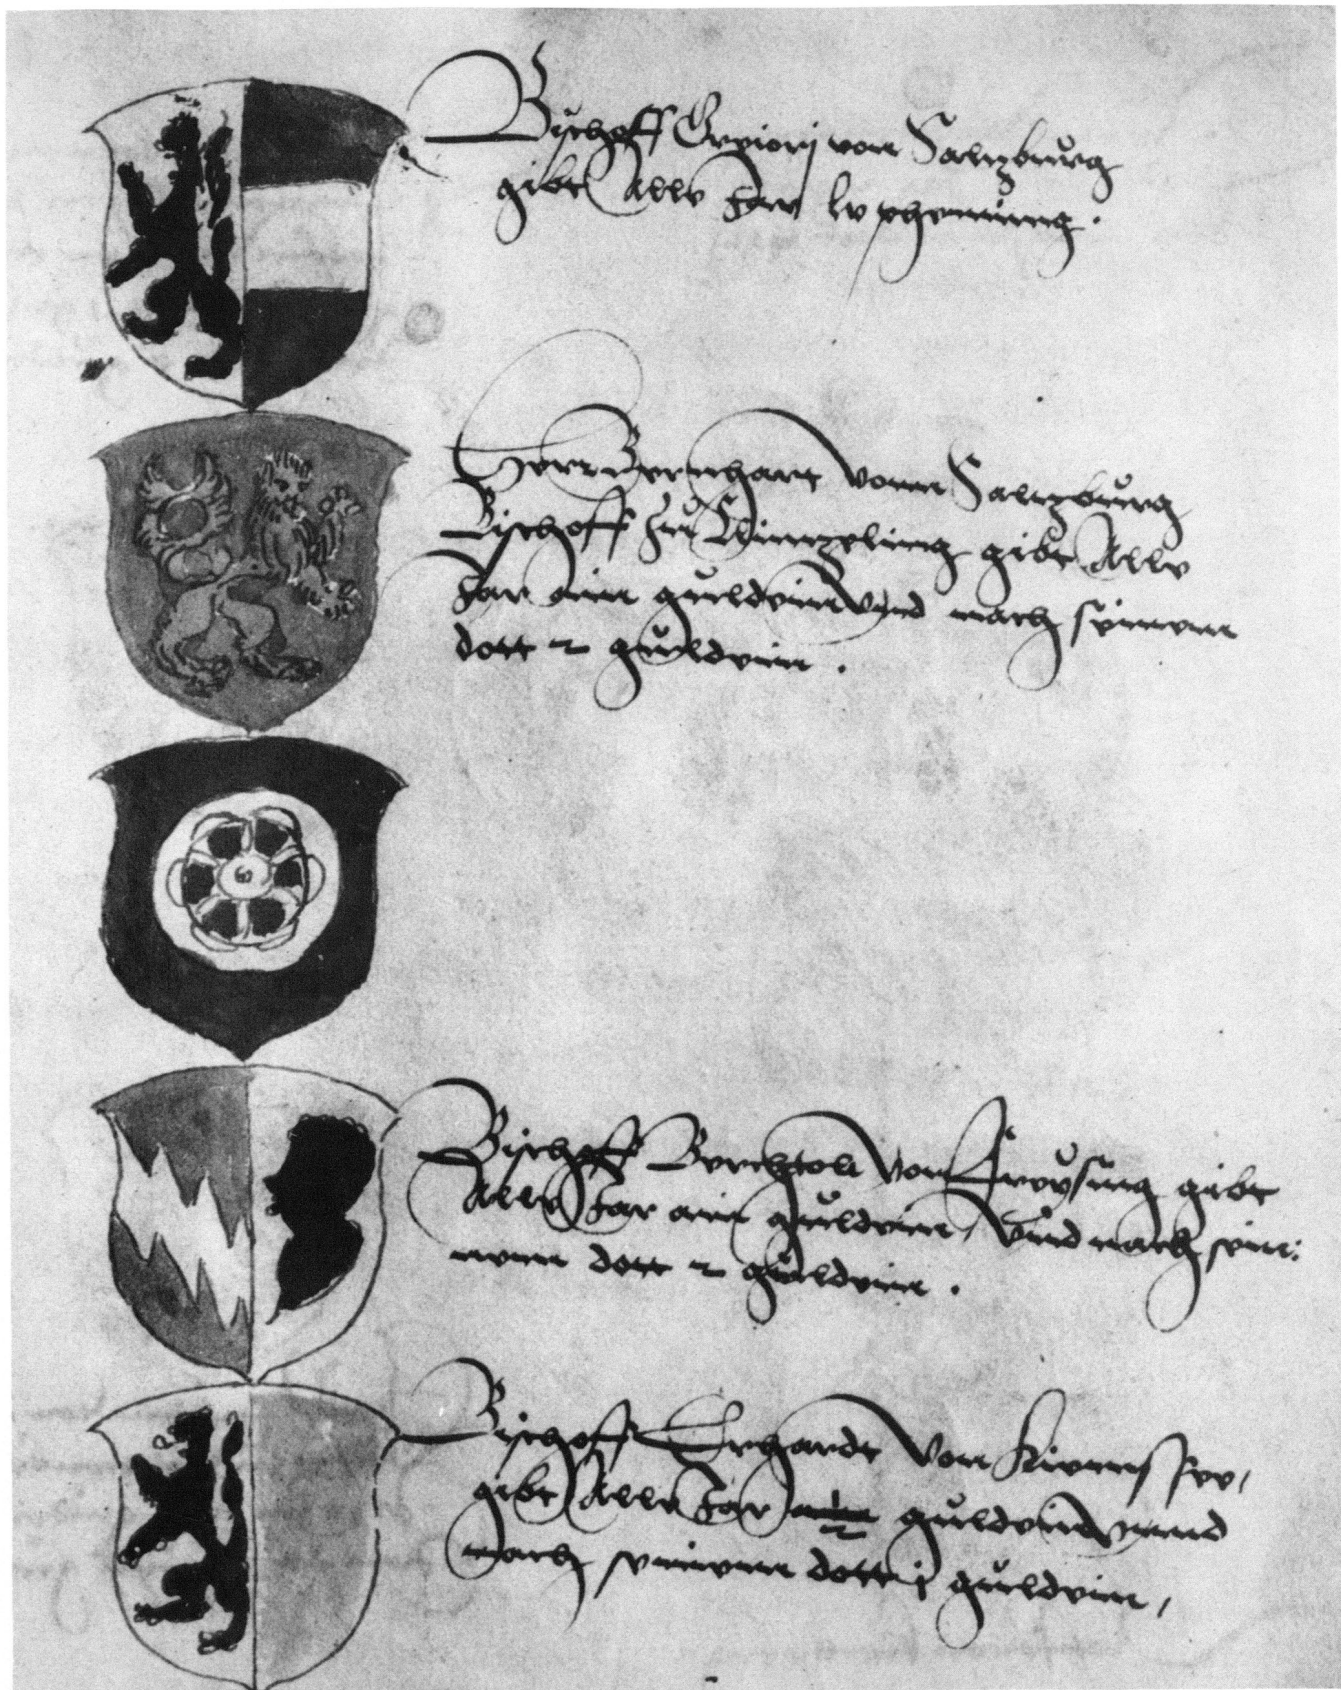 Bischoff Grviorj von Saltzburg
gibt Alle Jar lx phenning.
Herr Bernhart vonn Saltzburg
Bischoff zu gibt Alle
Jar ain guldein Vnd nach seinem
dott 2 guldein.
Bischoff Berchtolt von Freysing gibt
Alle Jar ain guldein, Vnd nach sein:
nem dott 2 guldein.
Bischoff Erhardt von Kiemssee,
gibt Alle Jar guldein vnnd
nach seinem dott j guldein,